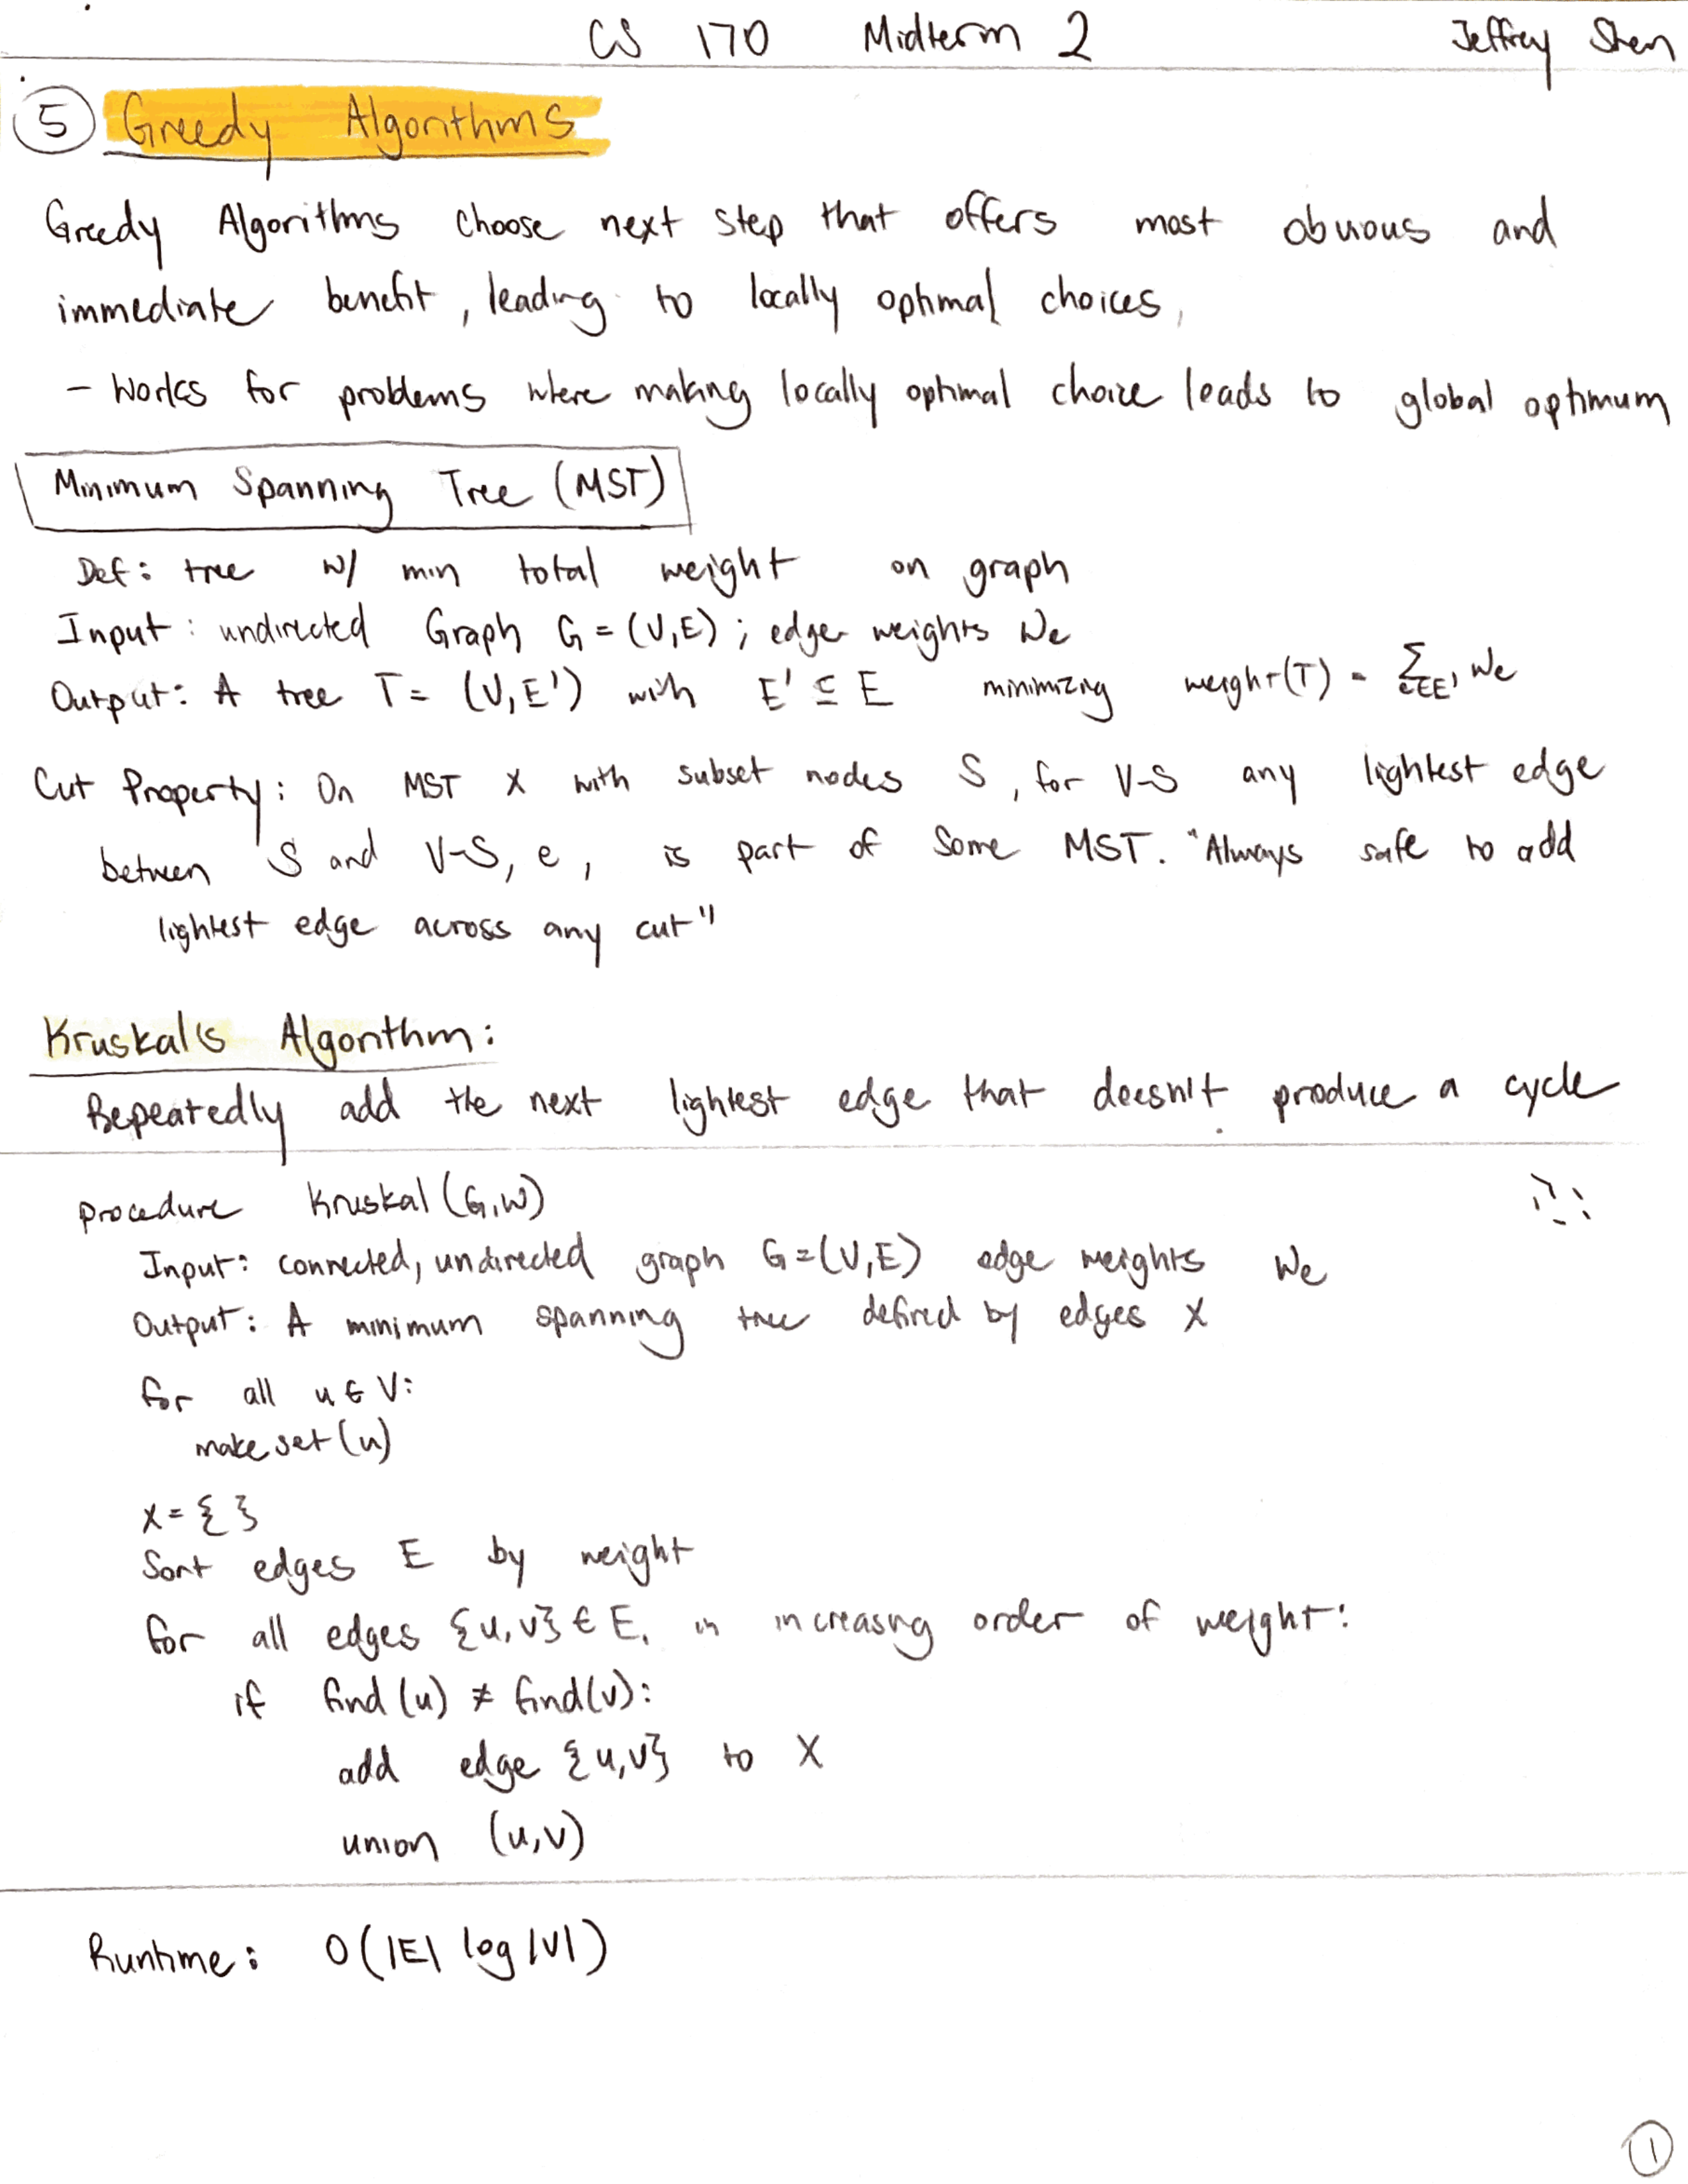 CS 170 Midterm 2 Jeffrey Shen
5 Greedy Algorithms
Greedy Algorithms choose next step that offers most obvious and
immediate benefit, leading to locally optimal choices,
- Works for problems where making locally optimal choice leads to global optimum
Minimum Spanning Tree (MST)
Def: tree w/ min total weight on graph
Input: undirected Graph G = (V,E); edge weights We
Output: A tree T = (V,E') with E' ⊆ E minimizing weight(T) = ∑e∈E' We
Cut Property: On MST X with subset nodes S, for V-S any lightest edge
between S and V-S, e, is part of some MST. "Always safe to add
lightest edge across any cut"
Kruskal's Algorithm:
Repeatedly add the next lightest edge that doesn't produce a cycle
procedure Kruskal(G,W)
Input: connected, undirected graph G=(V,E) edge weights We
Output: A minimum spanning tree defined by edges X
for all u ∈ V:
makeset(u)
X = { }
Sort edges E by weight
for all edges {u,v} ∈ E, in increasing order of weight:
if find(u) ≠ find(v):
add edge {u,v} to X
union (u,v)
Runtime: O(|E| log |V|)
1